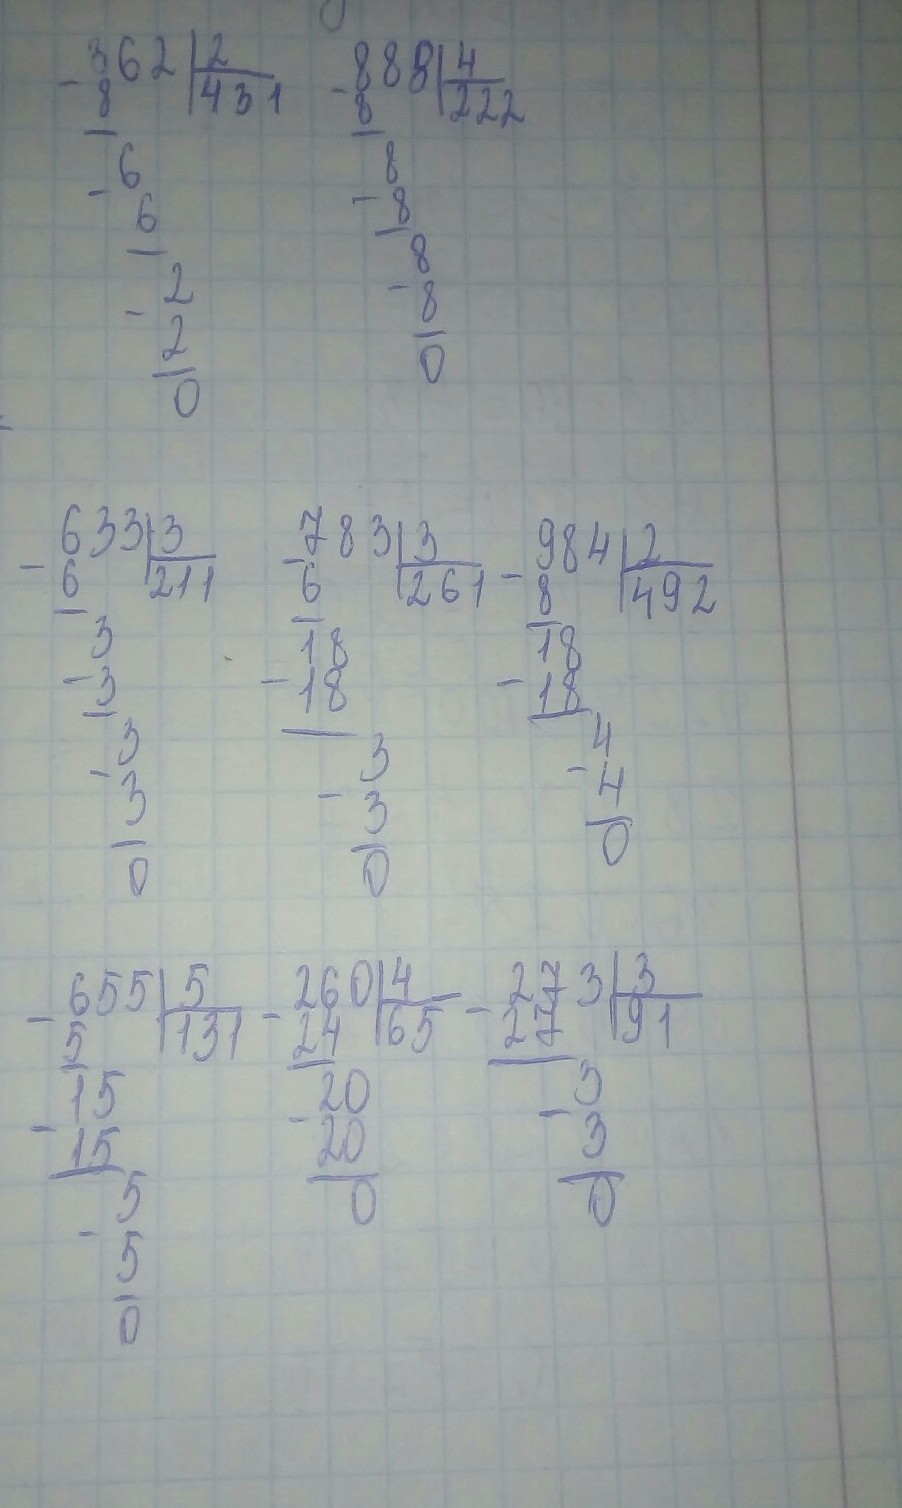 862 2 888 4
- 8 431 - 8 222
6 8
- 6 - 8
2 8
- 2 - 8
0 0
633 3 783 3 984 2
- 6 211 - 6 261 - 8 492
3 18 18
- 3 - 18 - 18
3 3 4
- 3 - 3 - 4
0 0 0
655 5 260 4 273 3
- 5 131 - 24 65 - 27 91
15 20 3
- 15 - 20 - 3
5 0 0
- 5
0